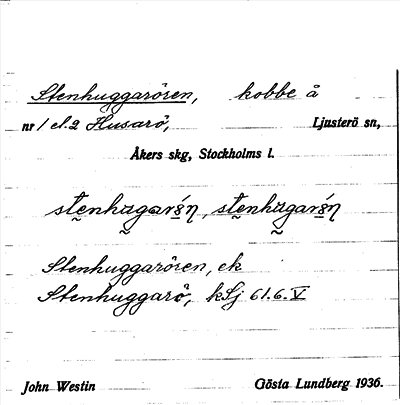 Stenhuggarören, kobbe å
nr 1 el. 2 Husarö, Ljusterö sn,
Åkers skg, Stockholms l.
Stenhuggarören, ek
Stenhuggarö, kSj 61.6.V
John Westin Gösta Lundberg 1936.